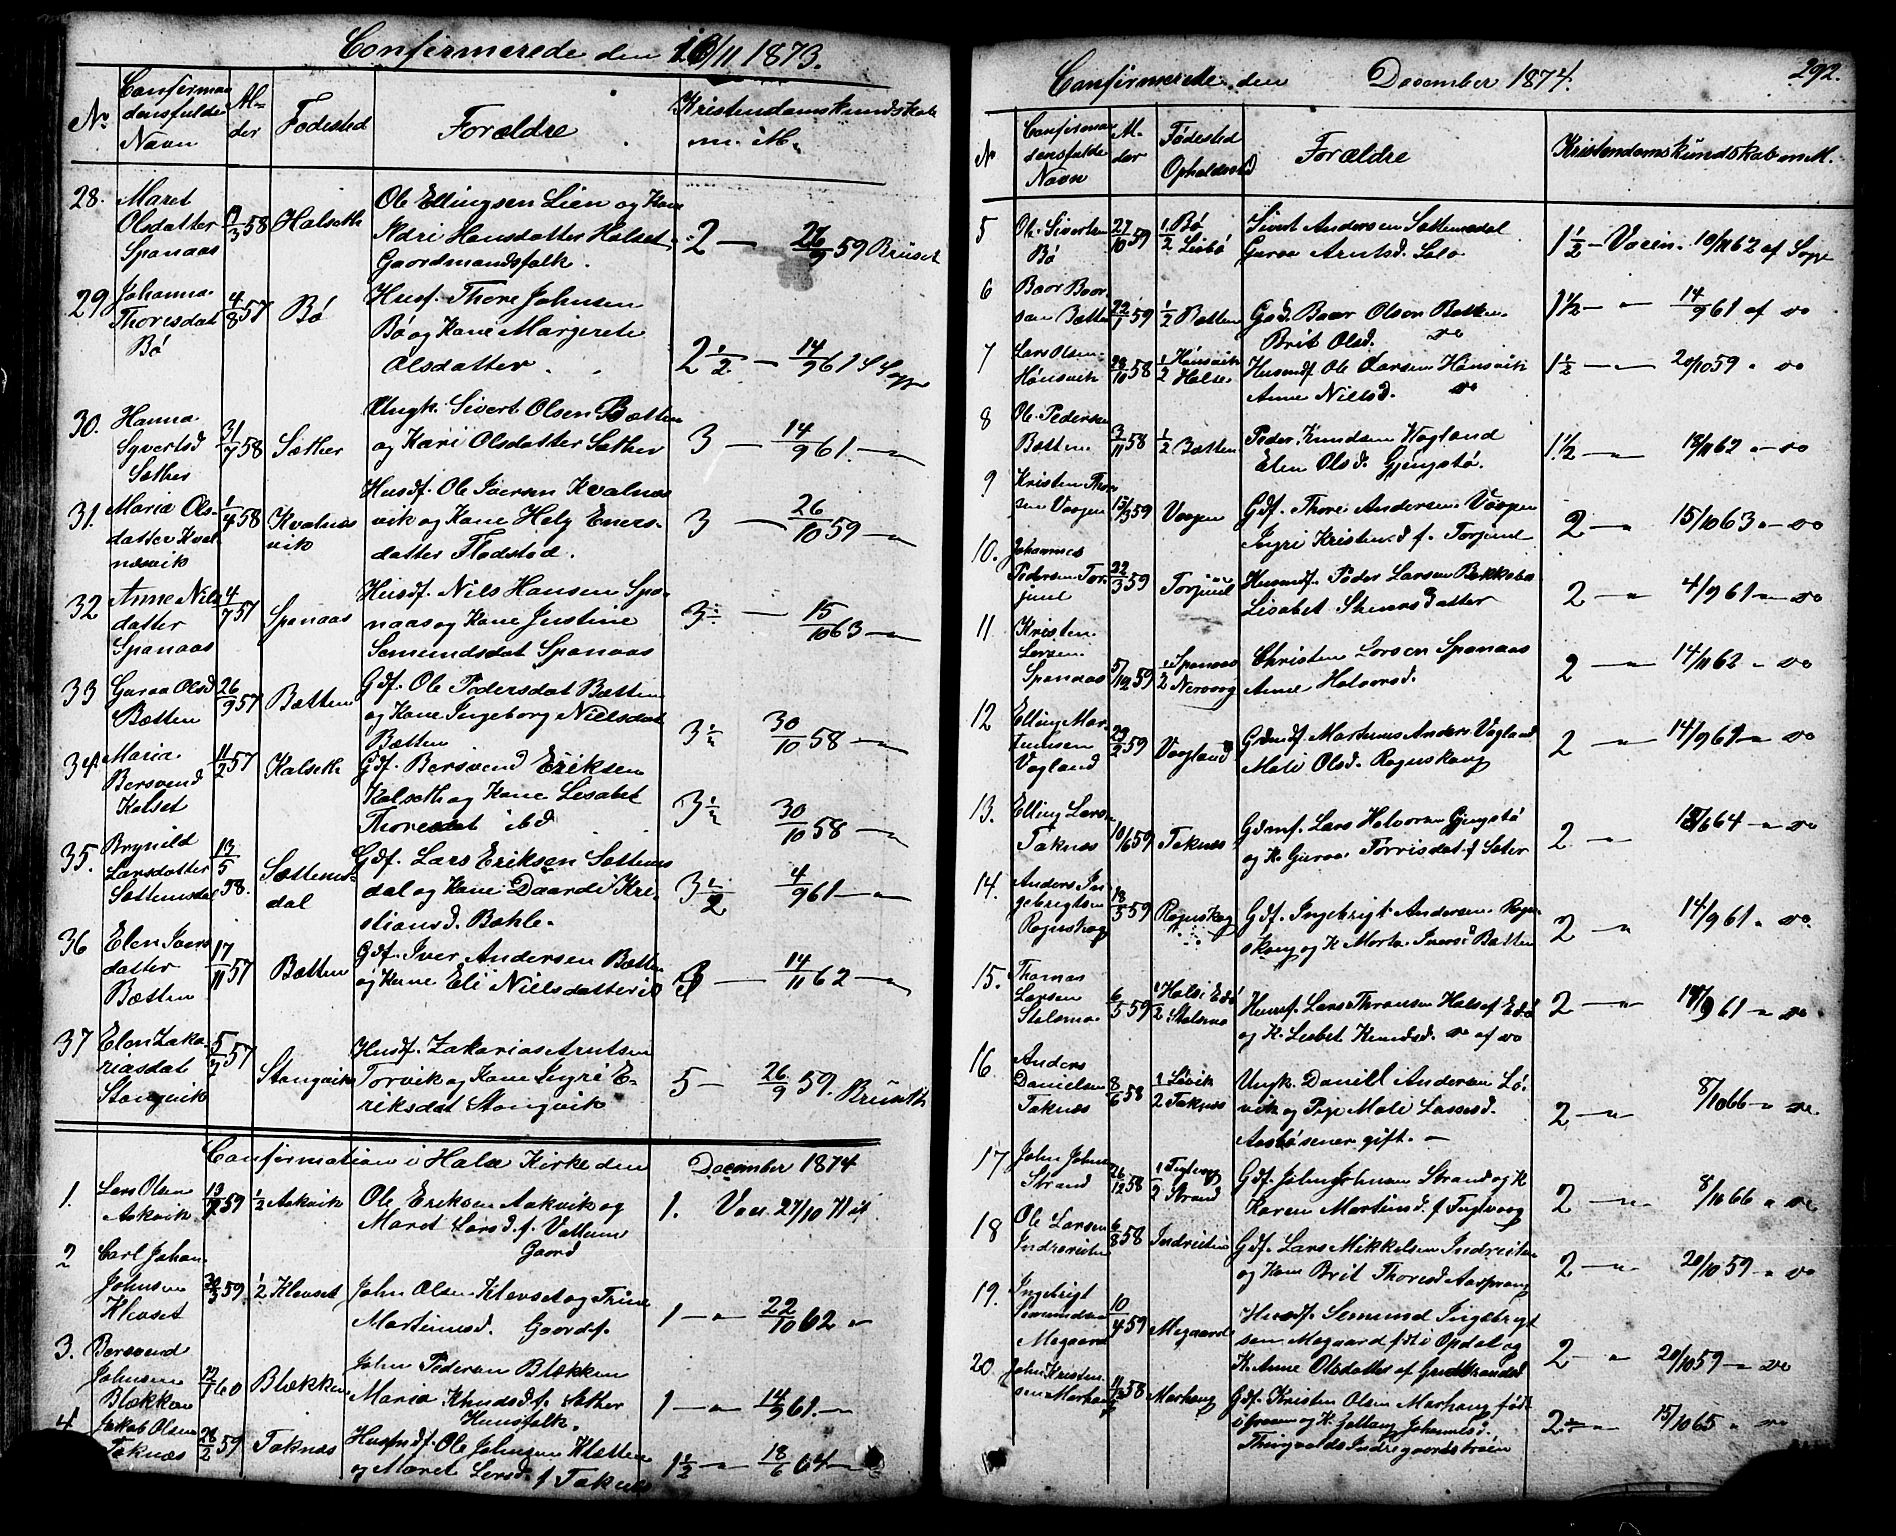 Confirmerede den 16/11 1873.
No Confirmandens fulde Navn Alder Fødested Forældre Kristendomskundskab m. M.
28. Maret Olsdatter Spanaas 19/3 58 Halseth Ole Ellingsen Lien og Kone
Hansdatter Halset
Gaardmandsfolk. 2 — 26/9 59 Bruset
29 Johanna Thoresdat Bø 4/8 57 Bø Husf. Thore Johnsen
Bø og Kone Margrete
Olsdatter. 2 1/2 — 14/9 61
30. Hanna Syvertsd Sæther 31/7 58 Sæther Ungk. Sivert Olsen Bætten
og Kari Olsdatter Sæther 3 — 14/9 61. — "
31. Maria Olsdatter Kvalnæsvik 1/4 58 Kvalnæsvik Husdf. Ole Iversen Kvalnæs
vik og Kone Helg Eners-
datter Flodstod. 3 — 26/10 59 — "
32 Anne Nilsdatter Spanaas 4/7 57 Spanaas Husdf. Nils Hansen Spa-
naas og Kone Justine
Semundsdat Spanaas 3 — 15/10 63 — "
33 Guroa Olsd Bætten 26/9 57 Bætten Gdf. Ole Pedersdat Bætten
og Kone Ingeborg Nielsdat
Bætten 3 1/2 30/10 58 — "
34 Maria Bersvend Kalset 11/2 57 Kalseth Gdf. Bersvend Eriksen
Kalseth og Kone Lisabet
Thoresdat ibd 3 1/2 30/10 58 — "
35. Brynild Larsdatter Settemsdal 13/5 58. Sættemsdal Gdf. Lars Eriksen Settems
dal og Kone Daardi Kri-
stiansd. Bahle. 3 1/2 4/9 61 — "
36 Elen Iversdatter Bætten 17/11 57 Bætten Gdf. Iver Andersen Bætten
og Kone Eli Nielsdatter — 14/11 62 — "
37 Elen Zakariasdat Stangvik 5/7 57 Stangvik Husdf. Zakarias Arntsen
Torvik og Kone Ingri E-
riksdat Stangvik 5 — 26/9 59. Bruseth
Confirmation i Halse Kirke den December 1874
1. Lars Olsen Aakvik 13/7 59 1/2 Aakvik Ole Eriksen Aakvik og
Maret Larsd. f. Vattum
Gaard 1. Vac. 27/10 71
2 Carl Johan Johnsen Klevset 30/3 59 1/2 Klevset John Olsen Klevset og Trine
Martinusd. Gaardf. 1 — " — 22/10 62 "
3. Bersvend Johnsen Blekken 22/7 60 Blekken John Pedersen Blekken
Maria Knudsd. f. Sæther
Huusfolk. 1 — " — 14/9 61. — "
4 Jakob Olsen Taknæs 28/2 59 Taknæs Husmdf. Ole Johnsen Kletten
og Maret Larsd. f. Taknæs 1 1/2 — " — 18/6 64 — "
Confirmerede den December 1874. 292.
No Confirmandens fulde Navn Alder Fødested Opholdssted Forældre Kristendomskundskab m M.
5 Ole Sivertsen Bø 27/10 59 1/2 Bø Lisbø Sivert Andersen Settemsdal
Guroa Arntsd. 1 1/2 — Vaccin. 10/11 62 af
6 Baar Baarsen Bætten 22/1 59 1/2 Bætten Baar Olsen Bætten.
Brit Olsd. do 1 1/2 — " — 14/9 61 af do
7 Lars Olsen Hønsvik 28/10 58 1/2 Hønsvik Halse Husmdf. Ole Larsen Hønsvik
Anne Nielsd. do 1 1/2 — " — 20/10 59 " do
8 Ole Pedersen Bætten 3/11 58 1/2 Bætten Peder Knudsen Hagland
Elen Olsd. Gjengstø. 1 1/2 — " — 18/11 62 — " — do
9 Kristen Thorsen Vaagen 15/3 59 Vaagen Gdf. Thore Andersen Vaagen
Ingri Kristensd f. Torjul 2 — " — 15/10 63 — " — do
10. Johannes Pedersen Torjul 22/3 59 Torjul Husmdf. Peder Larsen Bekkebø
Lisabet Steensdatter 2 — " — 4/9 61 — " — do
11 Kristen Larsen Spanaas 5/12 59 1/2 Spanaas Nervaag Christen Larsen Spanaas
Anne Halvorsd. 2 — " — 14/11 62 " do
12 Elling Martinusen Vagland 29/2 59 Vagland Martinus Anders Vagland
Mali Olsd. Rognskoug 2 — " — 14/9 61 — " — do
13. Elling Larsen Taknæs 10/6 59 Taknæs Lars Halvorsen Gjengstø
og K. Guroa Torrisdat. f. Sæter 2 — " 18/6 64 — " — do
14. Anders Ingebrigtsen Rognskog 18/5 59 Rognskog Gdf. Ingebrigt Andersen Rogn-
skoug og K Marta Iversd Bætten 2 — " 14/9 61 " do.
15. Thomas Larsen Stølsmo 6/5 59 1/2 Halse Edø Stølsmo Husmf. Lars Thoresen Halse f Edø
og K. Lisbet Knudsd. do af do 2 — " — 14/9 61 — " do
16 Anders Danielsen Taknæs 8/6 58 1/2 Løvik Taknæs Ungk. Daniel Andersen Lø-
vik og Pige Mali Lassesd.
Aasbø gift. — 2 — " 8/10 66 — " do.
17 John Johnsen Strand 26/12 58 1/2 Fuglvaag Strand Gdf. John Johnsen Strand og K
Karen Martinsd. f Fuglvaag 2 — " — 8/10 66 " do
18 Ole Larsen Indresletten 6/8 58 Indresletten Gdf. Lars Mikkelsen Indresletten
og Kone Brit Thoresd Aasprang 2 — " 20/10 59 — " do
19. Ingebrigt Semundsen Megaard 10/4 59 Megaard Husdf. Semund Ingebrigt
sen Megaard født i Opdal og
K. Anne Olsdatter af 2 — " 20/10 59 — " do
20. John Kristensen Marhaug 11/12 58 Marhaug Gdf. Kristen Olsen Marhaug født
og K. Johannesd. 2 — " 15/10 65 " do